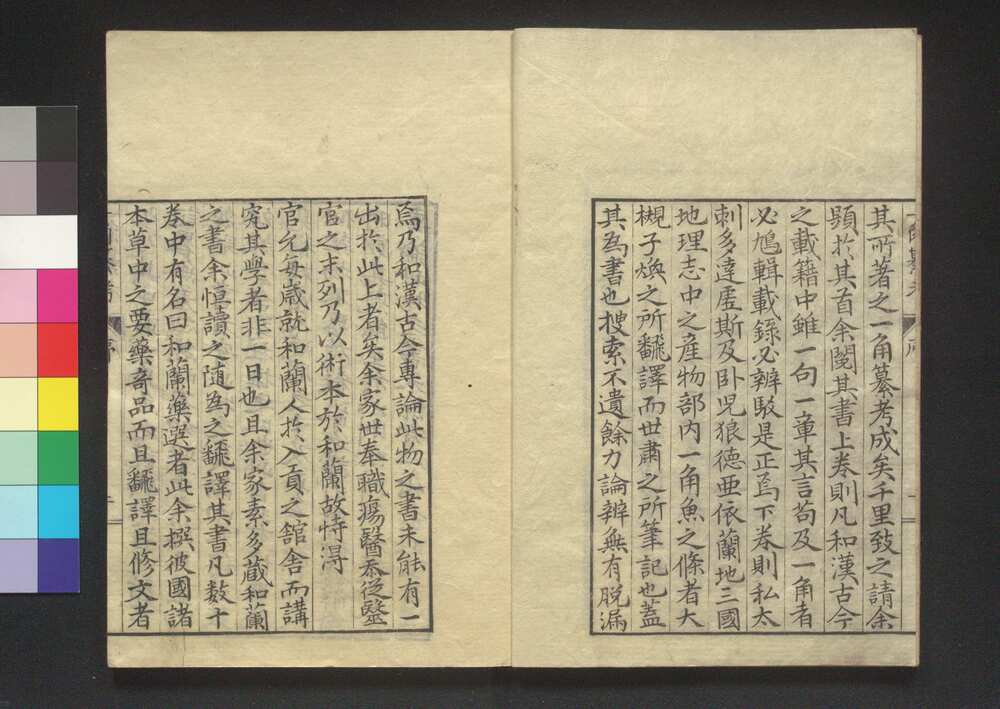 其所著之一角纂考成矣千里致之請余
題於其首余閱其書上巻則凡和漢古今
之載籍中雖一句一章其言苟及一角者
必鳩輯載錄必辨駁是正焉下巻則私太
剌多達虗斯及卧児狼徳亜依蘭地三國
地理志中之產物部内一角魚之條者大
槻子煥之所飜譯而世肅之所筆記也蓋
其為書也搜索不遺餘力論辨無有脱漏
焉乃和漢古今專論此物之書未能有一
出於此上者矣余家世奉職瘍醫忝從毉
官之末列乃以術本於和蘭故特淂
官允每歳就和蘭人於入貢之舘舎而講
究其學者非一日也且余家素多蔵和蘭
之書余恒讀之随為之飜譯其書凡数十
巻中有名曰和蘭藥選者此余撰彼國諸
本草中之要藥竒品而且飜譯且修文者